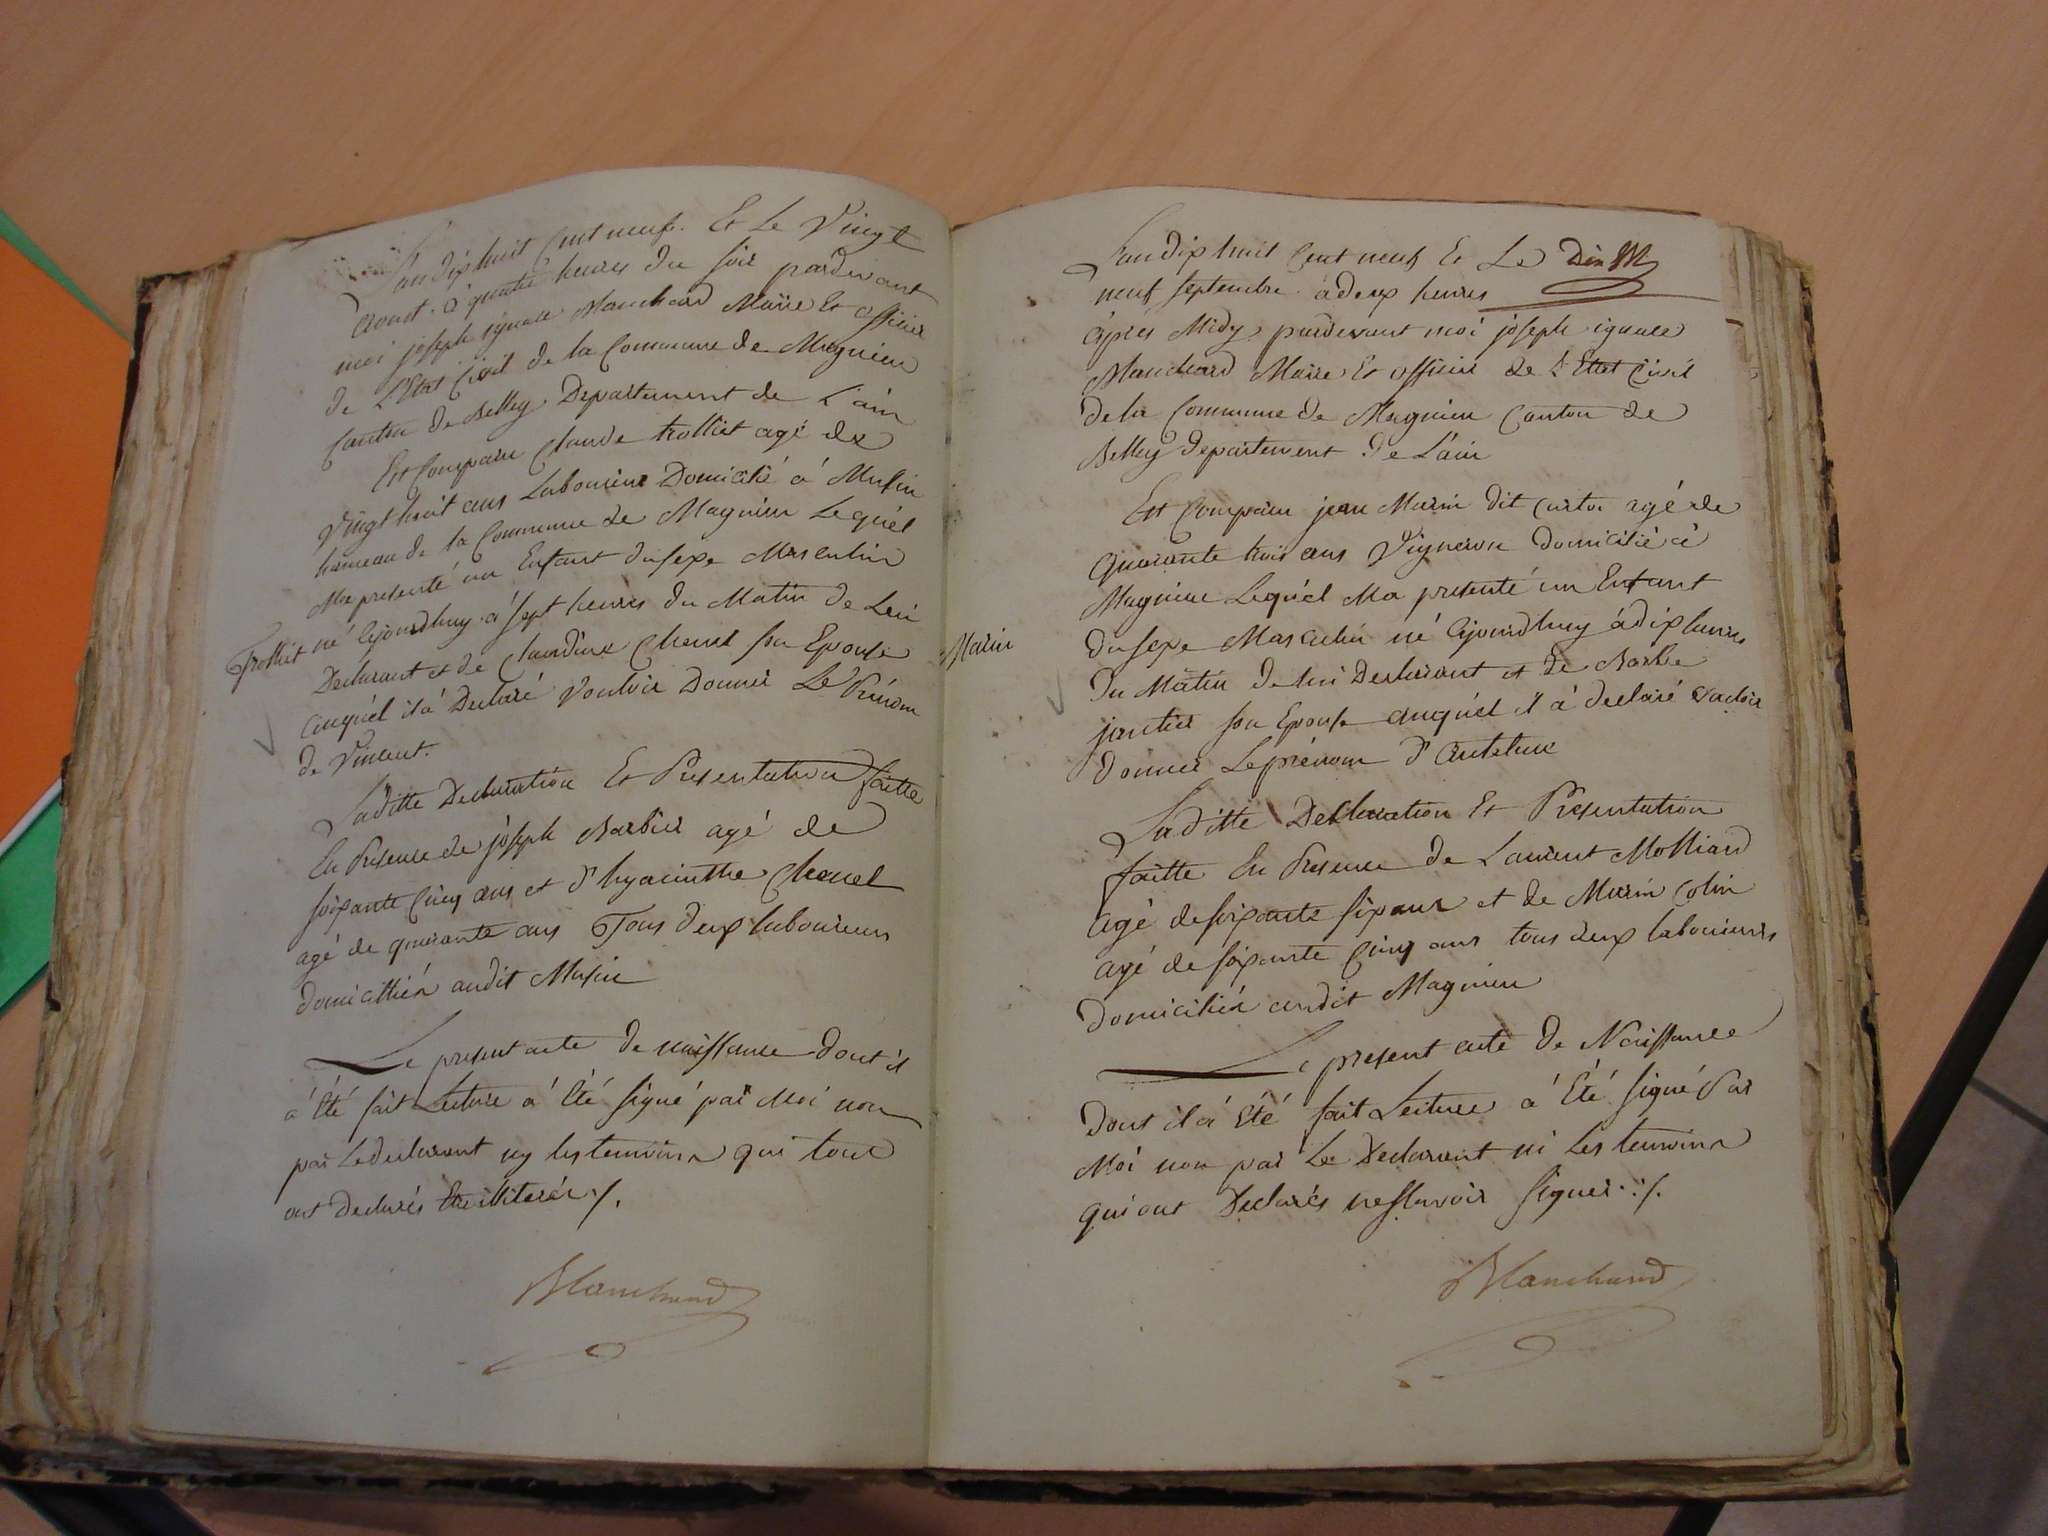 L'an dix huit Cent neuf. Et Le Vingt
Aoust. à quatre heures du soir pardevant
moi joseph ignace Blanchard Maire Et officier
de L'Etat Civil de la Commune de Magnieu
Canton de Belley Departement de L'ain
Est Comparu Claude trolliet agé de
Vingt huit ans Laboureur Domicilié à Musin
hameau de la Commune de Magnieu Lequel
Ma presenté un Enfant du sexe Masculin
Trolliet
né Ajourdhuy à sept heures du Matin de Lui
Declarant et de Claudine Chenel sa Epouse
auquel il à Declaré Vouloir Donner Le Prénom
de Vincent.
Laditte Declaration Et Presentation faitte
En Presence de joseph Barbier agé de
soixante Cinq ans et d'hyacinthe Chenel
agé de quarante ans Tous deux laboureurs
domicilliés audit Musin
Le present acte de naissance dont il
à Eté fait Lecture à Eté signé par Moi non
par Le declarant ny les temoins qui tous
ont Declarés Etre illiterés ./.
Blanchard
L'an dix huit Cent neuf Et Le Dix
neuf septembre à deux heures
Après Midy pardevant moi joseph ignace
Blanchard Maire Et officier de L'Etat Civil
de la Commune de Magnieu Canton de
Belley departement de L'ain
Est Comparu jean Marin dit agé de
quarante trois ans Vigneron domicilié à
Magnieu Lequel Ma presenté un Enfant
Marin
du sexe Masculin né Ajourdhuy à dix heures
du Matin de lui Declarant et de Barbe
jantin sa Epouse auquel il à declaré vouloir
donner Le prénom d'Antelme
Laditte Declaration Et Presentation
faitte En Presence de Laurent Molliard
agé de soixante six ans et de Marin Colin
agé de soixante Cinq ans tous deux laboureurs
domiciliés audit Magnieu
Le present acte de Naissance
Dont il à Eté fait Lecture à Eté signé Par
Moi non par Le Declarant ni Les temoins
qui ont Declarés ne sçavoir signer ./.
Blanchard